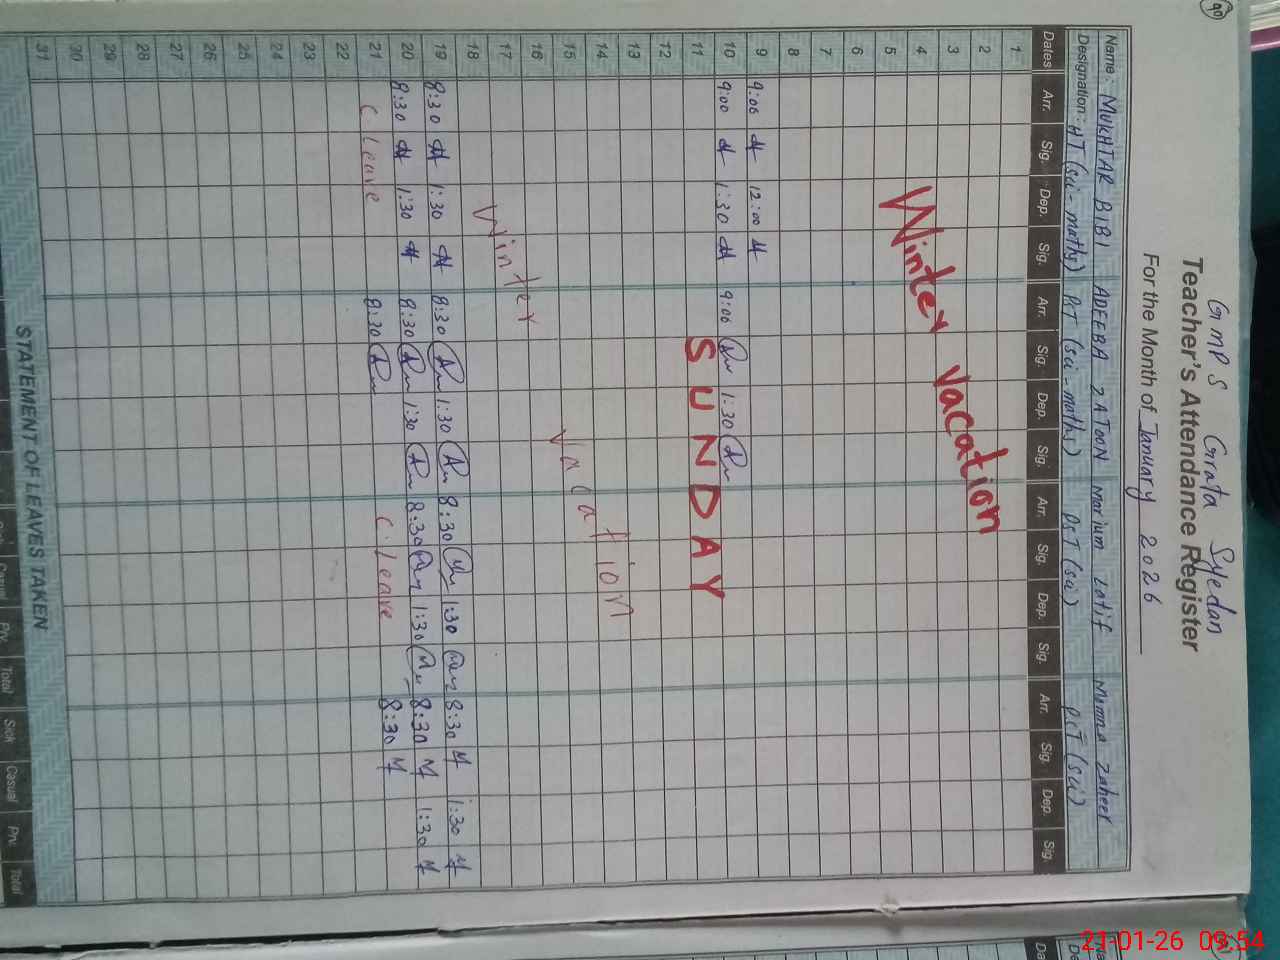 90
GMPS Grata Syedan
Teacher's Attendance Register
For the Month of January 2026
Name: MUKHTAR BIBI ADEEBA ZATOON Marium Latif Mimna Zaheer
Designation: HT (sci-maths) PST (sci-maths) PST (sci) PST (sci)
Dates Arr. Sig. Dep. Sig. Arr. Sig. Dep. Sig. Arr. Sig. Dep. Sig. Arr. Sig. Dep. Sig.
1
2
3
4
5
Winter vacation
6
7
8
9 9:06 12:00
10 9:00 1:30 9:06 1:30
11 SUNDAY
12
13
14
15
16
17
18
Winter vacation
19 8:30 1:30 8:30 1:30 8:30 1:30 8:30 1:30
20 8:30 1:30 8:30 1:30 8:30 1:30 8:30 1:30
21 C Leave 8:30 C. Leave 8:30
22
23
24
25
26
27
28
29
30
31
STATEMENT OF LEAVES TAKEN
Casual Prv. Total Sick Casual Prv. Total
21-01-26 09:54